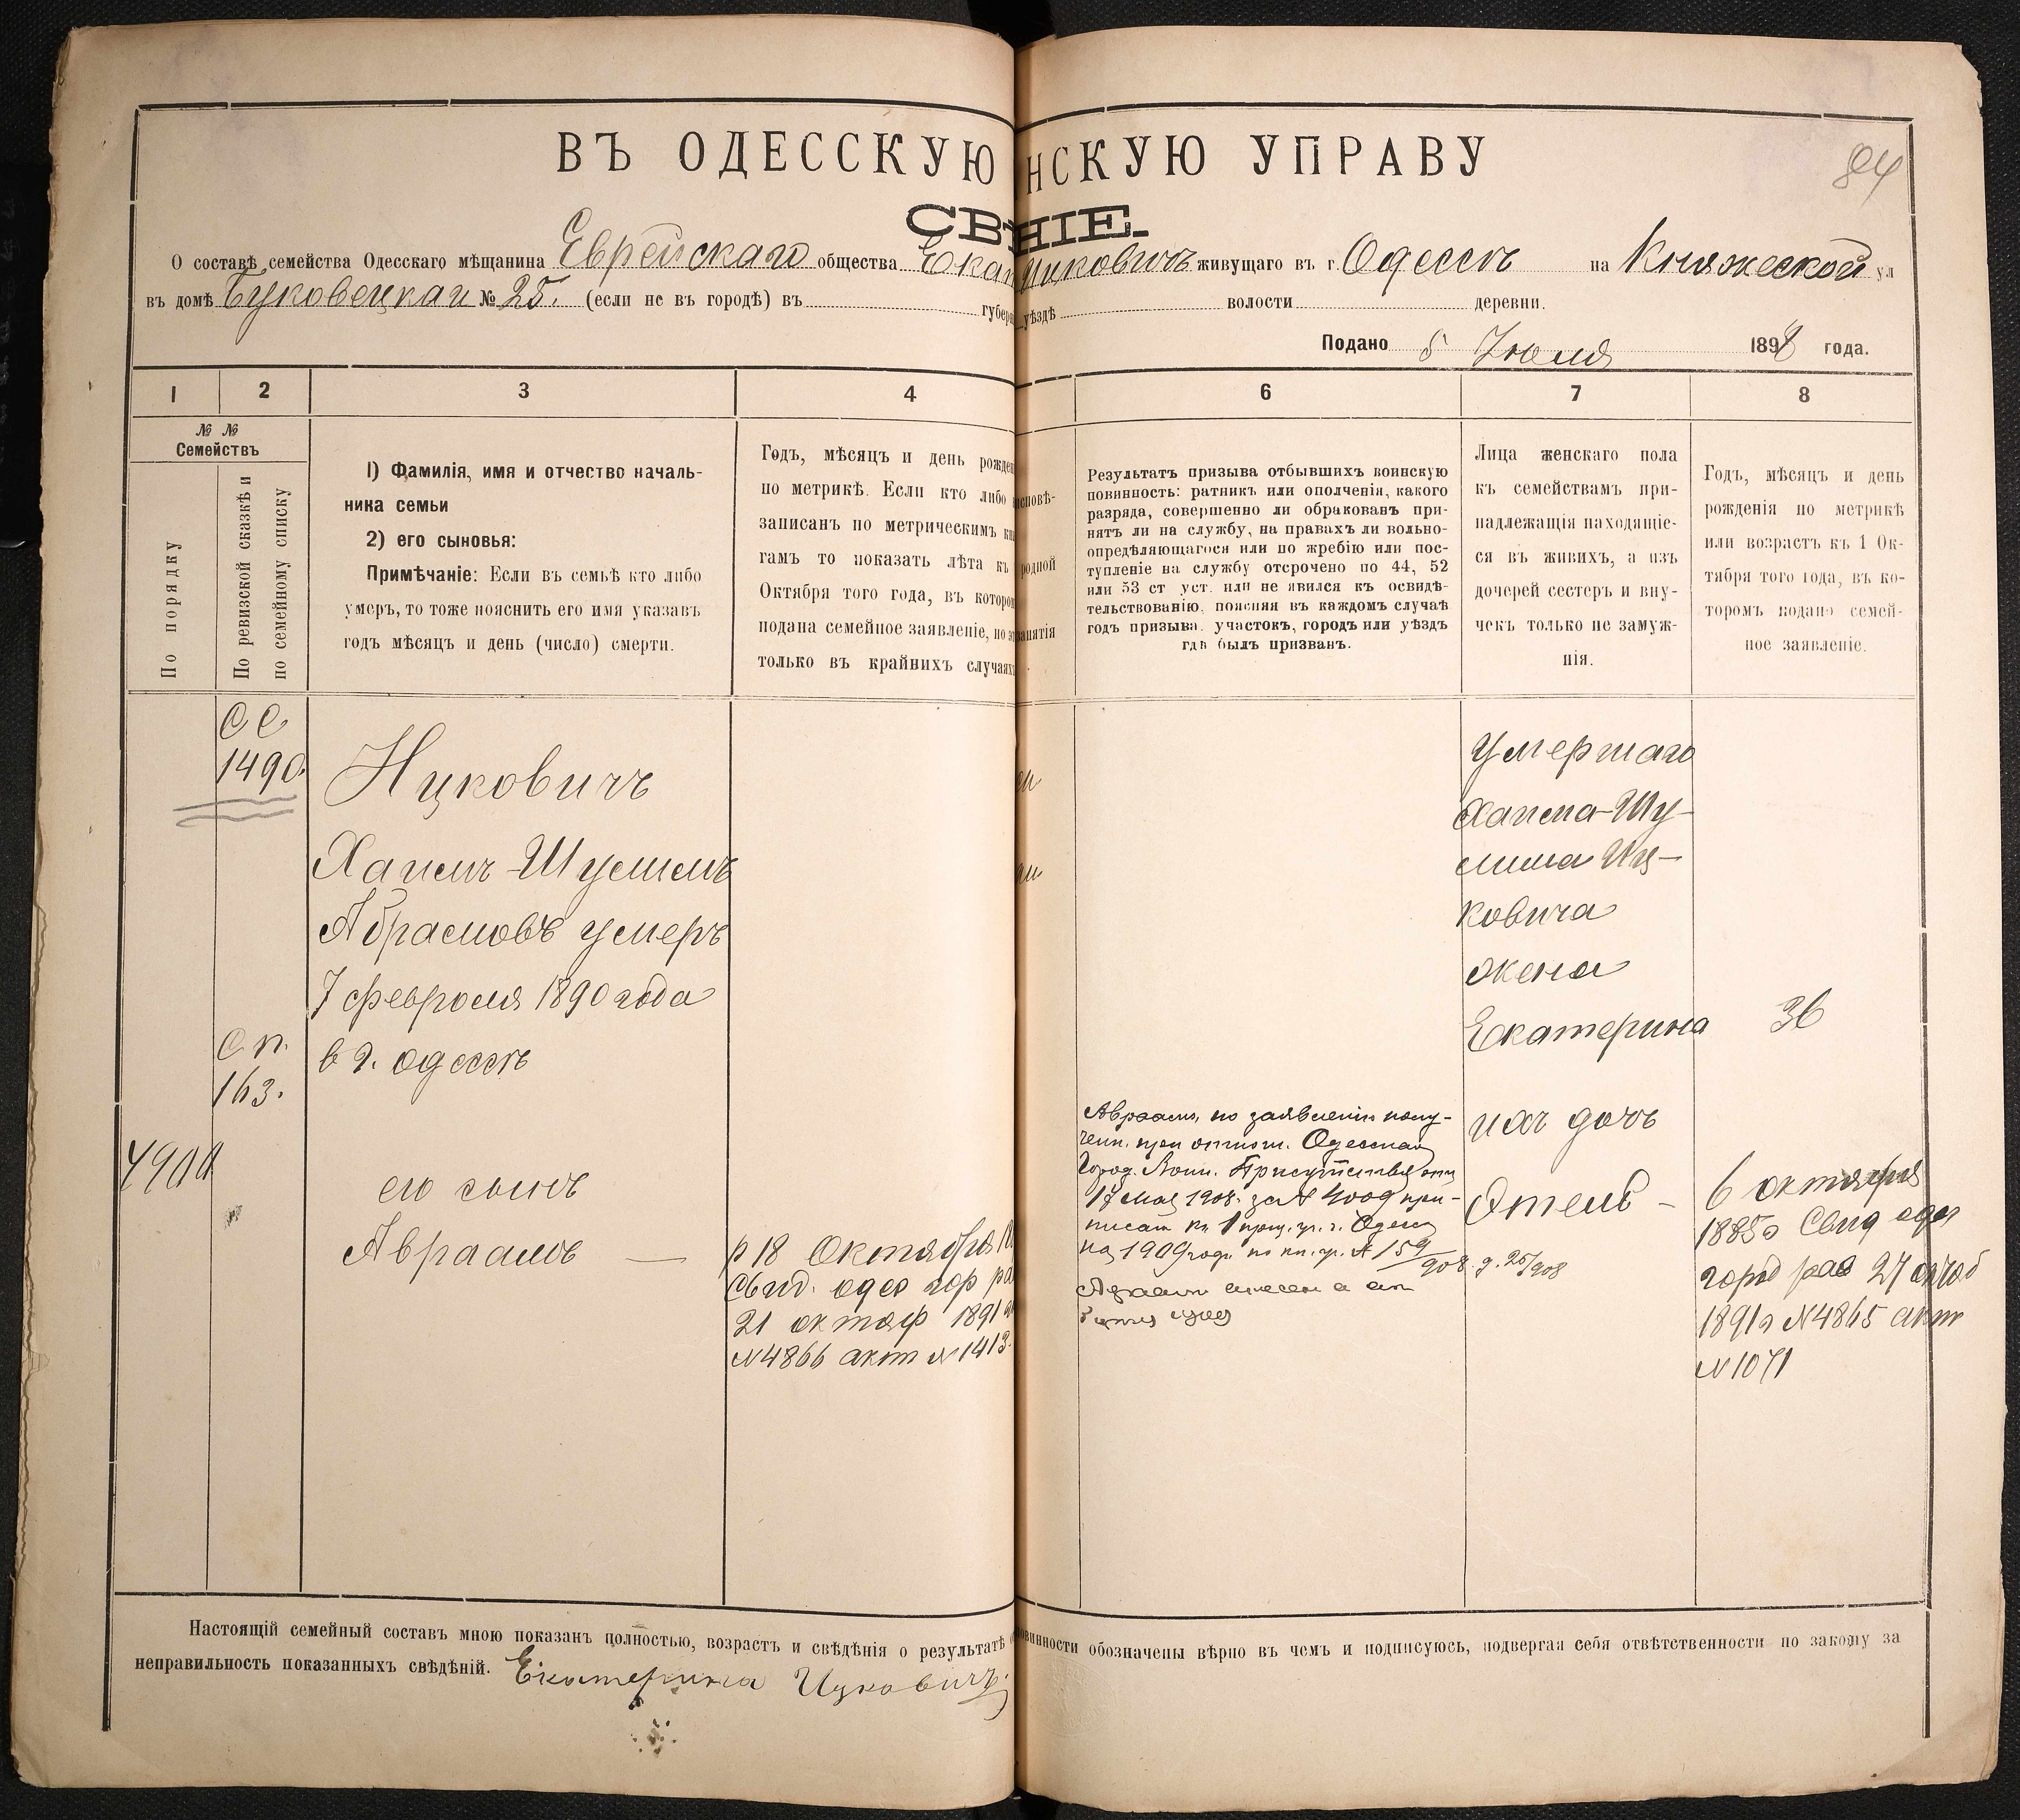 84
ВЪ ОДЕССКУЮ НСКУЮ УПРАВУ
СВѢ НІЕ.
О составѣ семейства Одесскаго мѣщанина Еврейскаго общества Екат Ицковичъ живущаго въ г. Одессѣ на Княжеской ул
въ домѣ Буковецкаг № 25. (если не въ городѣ) въ губерн уѣздѣ волости деревни.
Подано 5 Июля 1898 года.
1 2 3 4 6 7 8
№ №
Семействъ
По порядку
По ревизской сказкѣ и
по семейному списку
1) Фамилія, имя и отчество началь-
ника семьи
2) его сыновья:
Примѣчаніе: Если въ семьѣ кто либо
умеръ, то тоже пояснить его имя указавъ
годъ мѣсяцъ и день (число) смерти.
Годъ, мѣсяцъ и день рожден
по метрикѣ. Если кто либо
записанъ по метрическимъ кн
гамъ то показать лѣта къ
Октября того года, въ котором
подана семейное заявленіе, но эт
только въ крайнихъ случаяхъ
исповѣ-
родной
занятія
Результатъ призыва отбывшихъ воинскую
повинность: ратникъ или ополченія, какого
разряда, совершенно ли обракованъ при-
нятъ ли на службу, на правахъ ли вольно-
опредѣляющагося или по жребію или пос-
тупленіе на службу отсрочено по 44, 52
или 53 ст уст. или не явился къ освидѣ-
тельствованію, поясняя въ каждомъ случаѣ
годъ призыва, участокъ, городъ или уѣздъ
гдѣ былъ призванъ.
Лица женскаго пола
къ семействамъ при-
надлежащія находящіе-
ся въ живихъ, а изъ
дочерей сестеръ и вну-
чекъ только не замуж-
нія.
Годъ, мѣсяцъ и день
рожденія по метрикѣ
или возрастъ къ 1 Ок-
тября того года, въ ко-
торомъ подано семей-
ное заявленіе.
СС
1490.
Сп.
163.
Ицковичъ
Хаимъ-Шулимъ
Абрамовъ умеръ
7 февраля 1890 года
в г. одессѣ
его сынъ
Авраамъ —
р 18 Октября
Свид. одес гор ра
21 октяб 1891
N 4866 акт N 1413.
Авраамъ, по заявленію полу-
чен. при отнош. Одесскаго
Город. Воин. Присутствія отъ
17 Мая 1908 за № 4009 при-
писан къ 1 приз. уч. г. Одессы
на 1909 годъ по кн. уч. № 159/908. д. 25/908
Умершаго
Хаима-Шу-
лима Иц-
ковича
жена
Екатерина 36
ихъ дочь
Этель -
6 октября
1885г Свид одес
город рав 27 октяб
1891г N 4865 акт
N 1071
Настоящій семейный составъ мною показанъ полностью, возрастъ и свѣдѣнія о результатѣ о повинности обозначены вѣрно въ чемъ и подписуюсь, подвергая себя отвѣтственности по закону за
неправильность показанныхъ свѣдѣній. Екатерина Ицковичъ